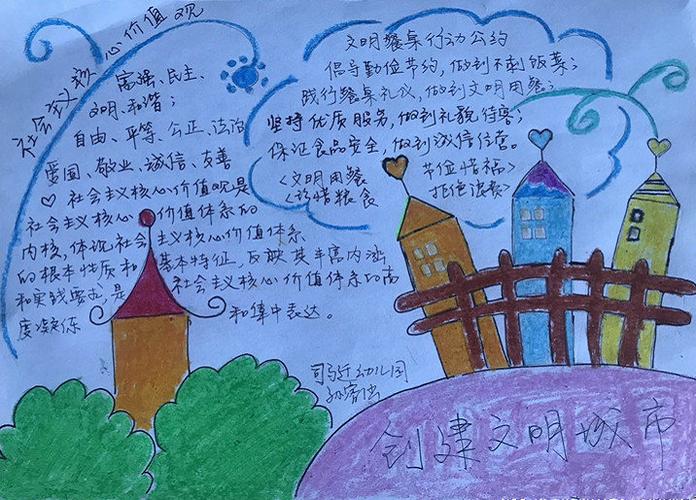 社会主义核心价值观
富强、民主、
文明、和谐;
自由、平等、公正、法治
爱国、敬业、诚信、友善
♡社会主义核心价值观是
社会主义核心价值体系的
内核,体现社会主义核心价值体系
的根本性质和基本特征,反映其丰富内涵
和实践要求,是社会主义核心价值体系的高
度凝练和集中表达。
文明餐桌行动公约
倡导勤俭节约,做到不剩饭菜;
践行餐桌礼仪,做到文明用餐;
坚持优质服务,做到礼貌待客;
保证食品安全,做到诚信经营。
<文明用餐 节俭惜福>
<珍惜粮食 拒绝浪费>
司马迁幼儿园
创建文明城市